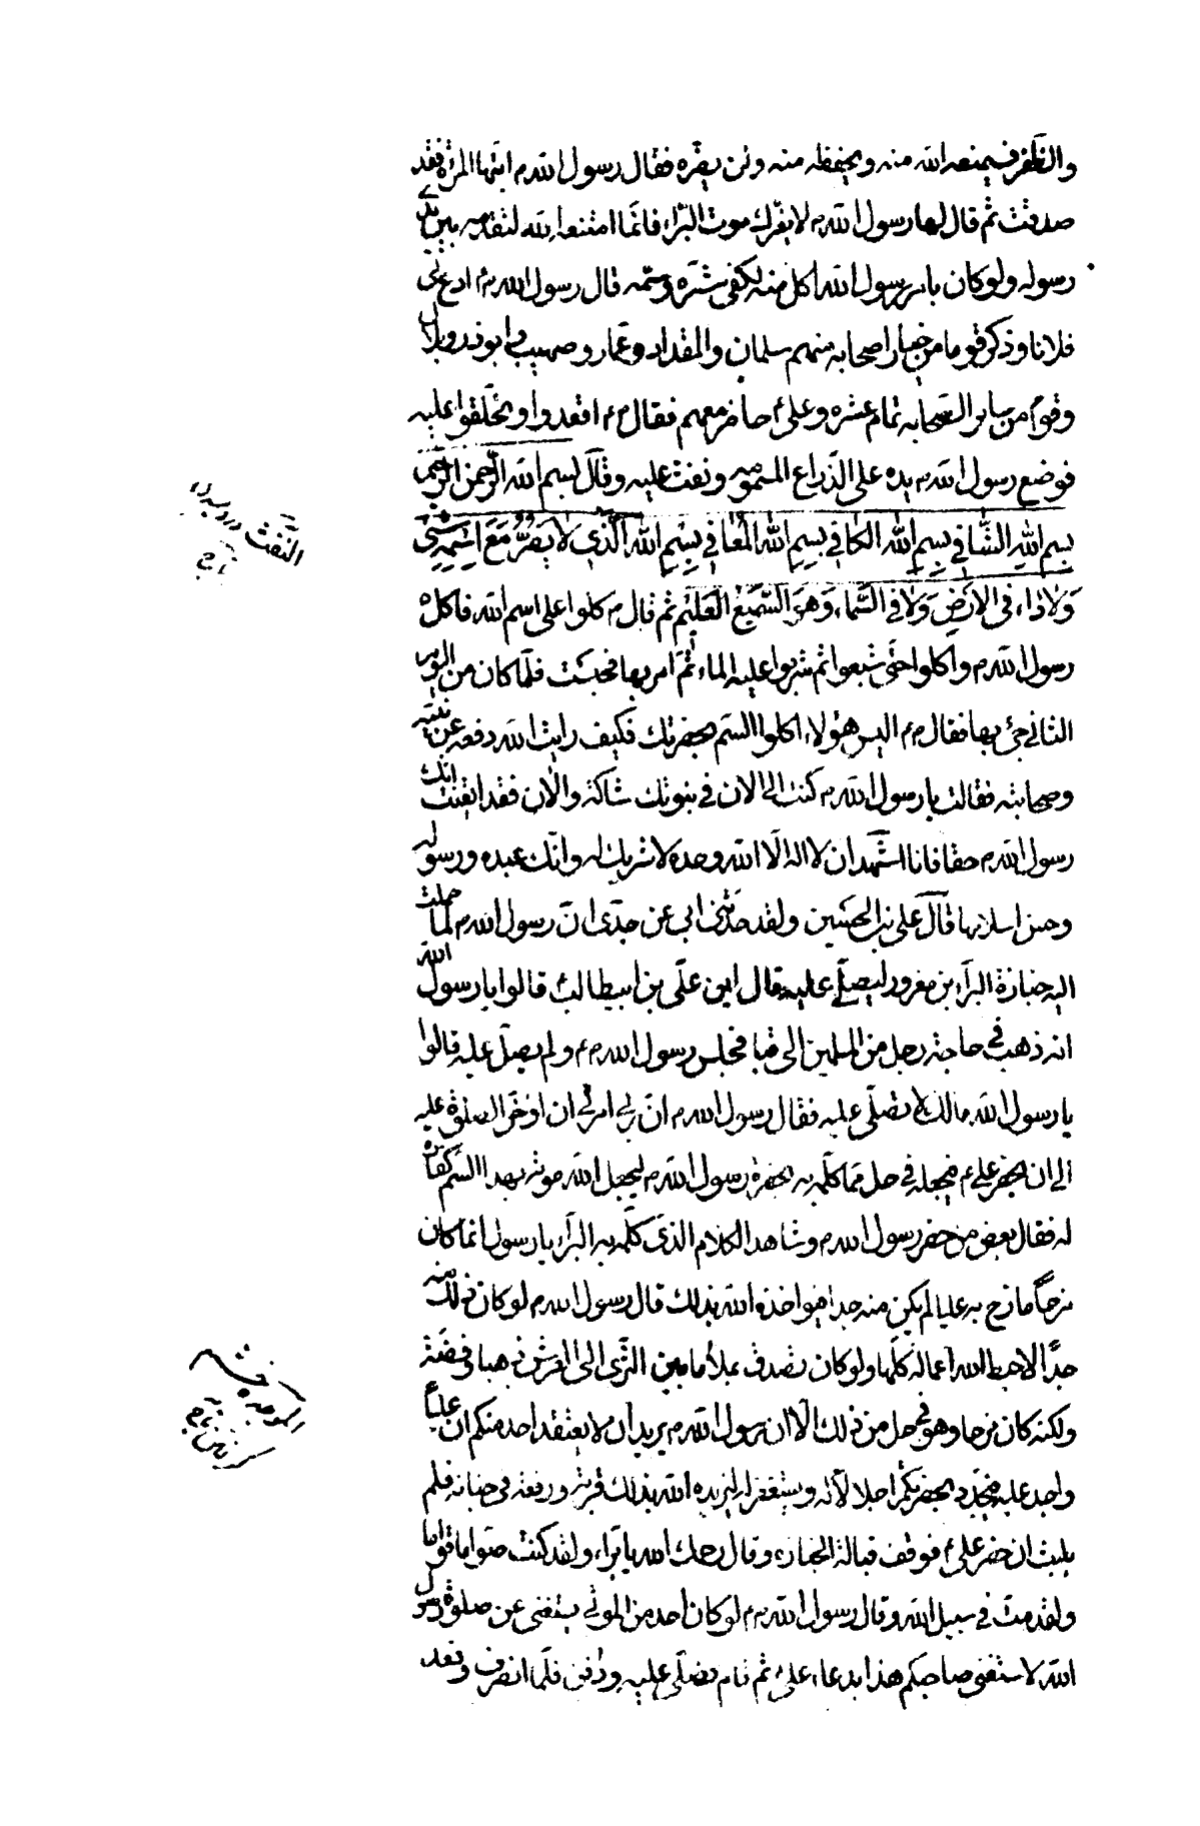 والظفر فيمنعه الله منه ويحفظه منه ولن يضره فقال رسول الله ص ايتها المرئة فقد
صدقت ثم قال لها رسول الله ص لا يغرك موت البراء فانما امتحنه الله لتقدمه بين يدي
رسوله ولو كان بامر رسول الله اكل منه لكفى شره وسمه قال رسول الله ص ادع لي
فلانا وذكر قوما من خيار اصحابه منهم سلمان والمقداد وعمار وصهيب وابو ذر وبلال
وقوم من ساير الصحابه تمام عشره وعلي ع حاضر معهم فقال ص اقعدوا وتحلقوا عليه
فوضع رسول الله ص يده على الذراع المسمومه ونفث عليه وقال بسم الله الرحمن الرحيم
بِسم اللهِ الشّافي بِسمِ اللهِ الكافي بِسمِ اللهِ المُعافي بِسمِ اللهِ الّذي لا يَضُرُّ مَعَ اسمِهِ شَيء
وَلا داء في الارضِ وَلا في السَّماء وَهوَ السَّميعُ العَليم ثم قال ص كلوا على اسم الله فاكل
رسول الله ص واكلوا حتى شبعوا ثم شربوا عليه الماء ثم امر بها فحبست فلما كان من اليوم
الثاني جئ بها فقال ص اليس هؤلاء اكلوا السم بحضرتك فكيف رايت الله دفعه عن نبيه
وصحابته فقالت يا رسول الله ص كنت الى الان في نبوتك شاكة والان فقد ايقنت انك
رسول الله ص حقا فانا اشهد ان لا اله الا الله وحده لا شريك له وانك عبده ورسوله
وحسن اسلامها قال علي بن الحسين ولقد حدثني ابي عن جدي ان رسول الله ص لما حملت
اليه جنازة البراء بن معرور ليصلي عليه قال اين علي بن ابيطالب قالوا يا رسول الله
انه ذهب في حاجة رجل من المسلمين الى قبا فجلس رسول الله ص ولم يصل عليه قالوا
يا رسول الله مالك لا تصلي عليه فقال رسول الله ص ان ربي امرني ان اؤخر الصلوة عليه
الى ان يحضر علي ع فيجعله في حل مما كلمه به بحضرة رسول الله ص ليجعل الله موته بهذا السم كفارة
له فقال بعض من حضر رسول الله ص وشاهد الكلام الذي كلمه به البراء يا رسول انما كان
مزحا مازح به عليا لم يكن منه جدا فيؤاخذه الله بذلك قال رسول الله ص لو كان ذلك منه
جدا لاحبط الله اعماله كلها ولو كان تصدق بملأ ما بين الثرى الى العرش ذهبا وفضة
ولكنه كان مزحا وهو في حل من ذلك الا ان رسول الله ص يريد ان لا يعتقد احد منكم ان عليا
واجد عليه فيجدد بحضرتكم احلالا له ويستغفر له ليزيده الله بذلك قربة ورفعة في جنانه فلم
يلبث ان حضر علي ع فوقف قبالة الجنازة وقال رحمك الله يا براء ولقد كنت صواما قواما
ولقد مت في سبيل الله وقال رسول الله ص لو كان احد من الموتى يستغني عن صلوة رسول
الله لاستغنى صاحبكم هذا بدعاء علي ع ثم قام فصلى عليه ودفن فلما انصرف وقعد
النَّفث